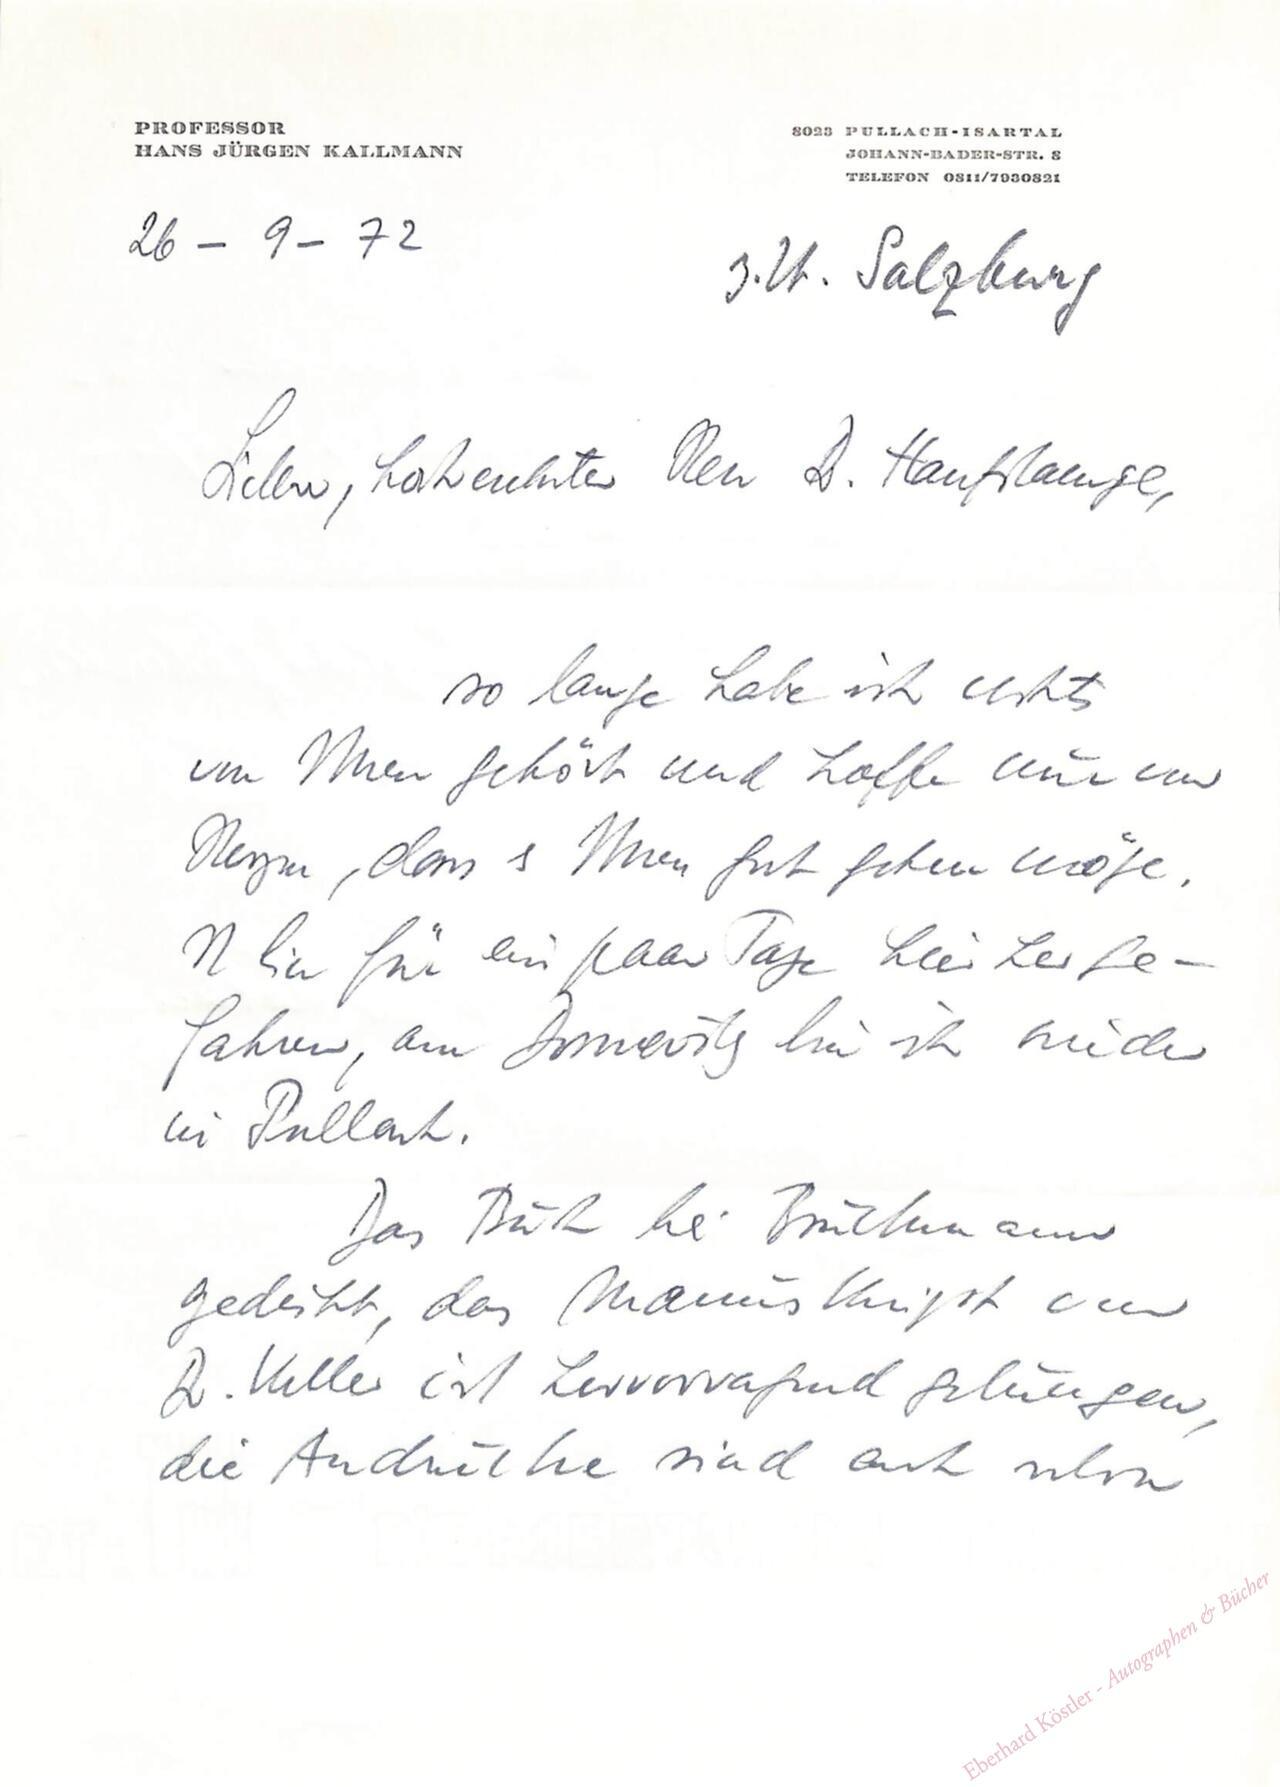 PROFESSOR
HANS JÜRGEN KALLMANN
8023 PULLACH-ISARTAL
JOHANN-BADER-STR. 8
TELEFON 0811/7930821
26 – 9 – 72
z. Zt. Salzburg
Lieber, hochverehrter Herr Dr. Hanfstaengl,
so lange habe ich nichts
von Ihnen gehört und hoffe nur von
Herzen, dass es Ihnen gut gehen möge.
Ich bin für ein paar Tage hierherge-
fahren, am Donnerstag bin ich wieder
in Pullach.
Das Buch bei Bruckmann
gedeiht, das Manuskript von
Dr. Keller ist hervorragend gelungen,
die Andrucke sind auch schon
Eberhard Köstler - Autographen & Bücher